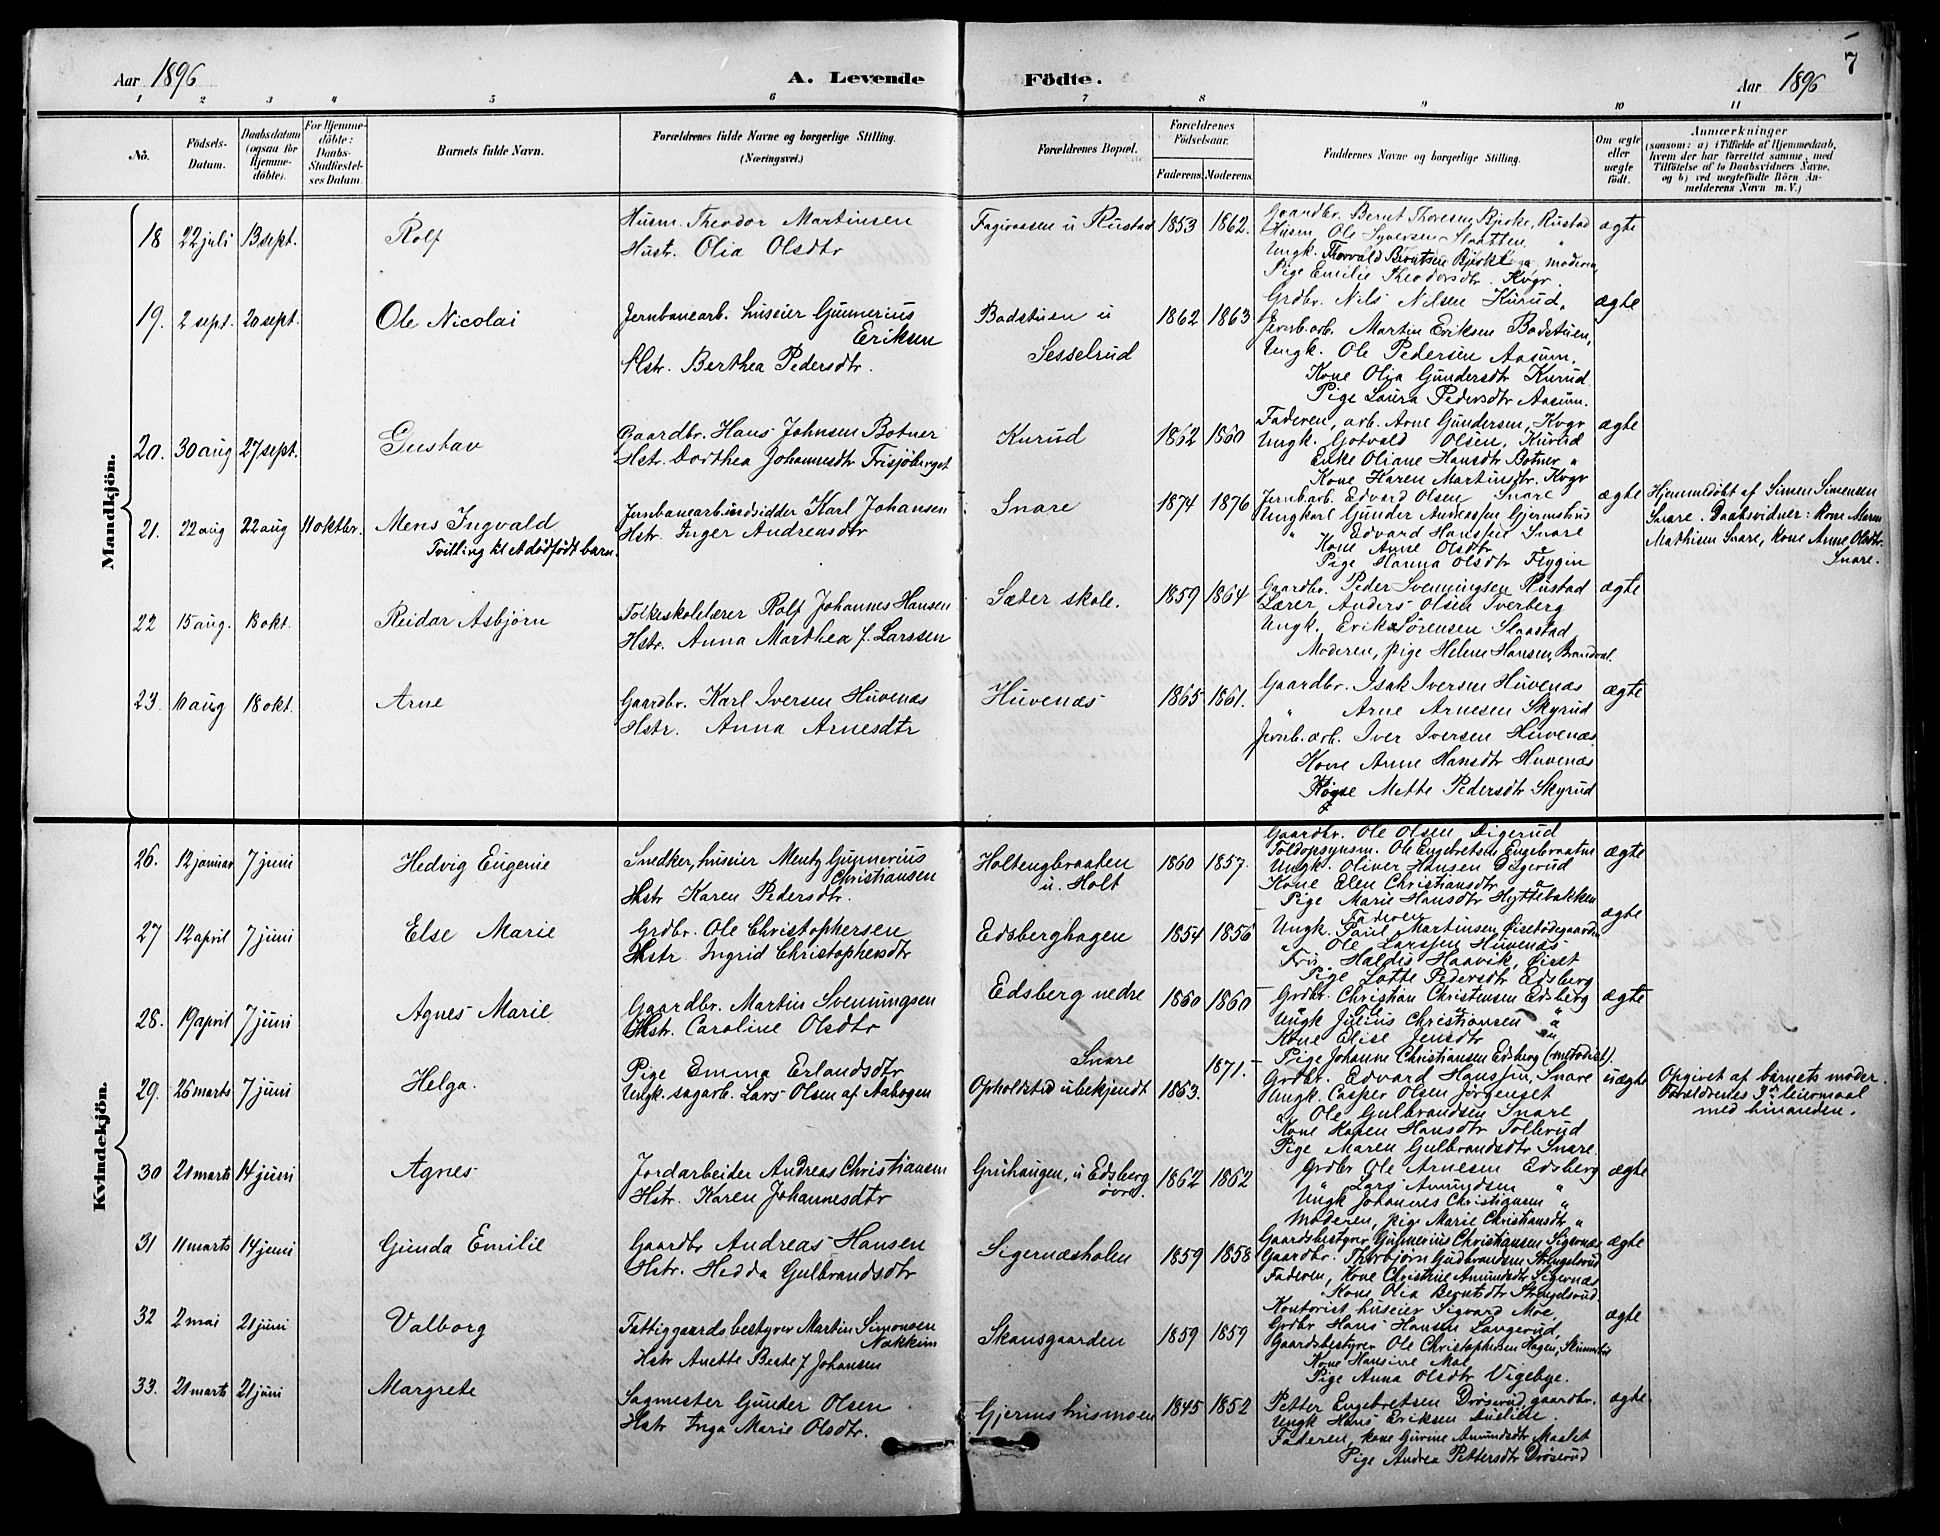 7
Aar 1896 A. Levende Födte. Aar 1896
1 2 3 4 5 6 7 8 9 10 11
No. Födsels-Datum. Daabsdatum (ogsaa for Hjemme-döbte). For Hjemme-döbte: Daabs-Stadfæstel-ses Datum. Barnets fulde Navn. Forældrenes fulde Navne og borgerlige Stilling. (Næringsvei.) Forældrenes Bopæl. Forældrenes Födselsaar. Faderens Moderens Faddernes Navne og borgerlige Stilling. Om ægte eller uægte födt. Anmærkninger (saasom: a) i Tilfælde af Hjemmedaab, hvem der har forrettet samme, med Tilföielse af to Daabsvidners Navne, og b) ved uægtefödte Börn An-melderens Navn m. V.)
Mandkjön.
18 22 juli 13 sept. Rolf Husm. Theodor Martinsen Fagiraasen u Rustad 1853 1862. Gaardbr. Bernt Thoresen Bjerke, Rustad ægte
Hustr. Olia Olsdtr Husm Ole Syversen Slaatten "
Ungk. Thorvald Berntsen Bjerke moderen
Pige Emilie Theodorsdtr. Kvgr.
19. 2 sept. 20 sept. Ole Nicolai Jernbanearb. huseier Gunnerius Badstuen u 1862 1863 Grdbr. Nils Nilsen Kurud, ægte
Eriksen Sesselrud Jernb. arb. Martin Eriksen Badstuen,
Hstr. Berthea Pedersdtr. Ungk. Ole Pedersen Aasum.
Kone Olia Gundersdtr Kurud
Pige Laura Pedersdtr Aasum.
20. 30 aug 27 sept. Gustav Gaardbr. Hans Johnsen Botner Kurud 1862 1860 Faderen, arb. Arne Gundersen, Kvgr ægte
Hstr. Dorthea Johannesdtr Frisjöberget Ungk. Gotvald Olsen, Kurud
Enke Oliane Hansdtr Botner "
Kone Karen Martinsdtr. Kvgr
21. 22 aug 22 aug 11 oktbr. Mens Ingvald Jernbanearb. indsidder Karl Johansen Snare 1874 1876 Jernb. arb. Edvard Olsen Snare ægte Hjemmedöbt af Simen Simensen
Tvilling til et dödfödt barn. Hstr. Inger Andreasdtr Ungkarl Gunder Andreassen Gjermshus Snare. Daabsvidner: Kone Maren
" Edvard Hanssen Snare Mathisen Snare, Kone Anne Olsdtr.
Kone Anne Olsdtr Snare.
Pige Hanna Olsdtr Flygin
22 15 aug. 18 okt. Reidar Asbjørn Folkeskolelærer Rolf Johannes Hansen Sæter skole. 1859 1864 Gaardbr. Peder Svenningsen Rustad ægte
Hstr. Anna Marthea f. Larssen Lærer, Anders Olsen Sverberg
Ungk. Erik Sørensen Slaastad
Moderen, pige Helene Hansen, Brandval.
23. 10 aug 18 okt. Arne Gaardbr. Karl Iversen Huvenæs Huvenæs 1865 1861. Gaardbr. Isak Iversen Huvenæs ægte
Hstr. Anna Arnesdtr " Arne Arnesen Skyrud
Jernb. arb. Iver Iversen Huvenæs
Kone Anne Hansdtr Huvenæs
Pige Mette Pedersdtr Skyrud
Kvindekjön.
26. 12 januar 7 juni Hedvig Eugenie Snedker, huseier Mentz Gunnerius Holtengbraaten 1860 1857. Gaardbr. Ole Olsen Digerud ægte
Christiansen u. Holt Toldopsynsm. Ole Engebretsen Engebraaten
Hstr. Karen Pedersdtr. Ungk. Oliver Hansen Digerud
Kone Elen Christiansdtr "
Pige Marie Hansdtr Hyttebakken
27 12 april 7 juni Else Marie Grdbr. Ole Christophersen Edsberghagen 1854 1856 Faderen ægte
Hstr. Ingrid Christophersdtr Ungk. Paul Martinsen Øisetödegaarden
" Ole Larssen Huvenæs
Frk. Haldis Haavik, Øiset
Pige Lotte Pedersdtr Edsberg
28. 19 april 7 juni Agnes Marie Gaardbr. Martin Svenningsen Edsberg nedre 1860 1860 Grdbr. Christian Christensen Edsberg ægte
Hstr. Caroline Olsdtr Ungk Julius Christiansen "
Kone Elise Jensdtr "
Pige Johanne Christiansen Edsberg (metodist).
29. 26 marts 7 juni Helga. Pige Emma Erlandsdtr Snare 1871. Grdbr. Edvard Hanssen, Snare uægte Opgivet af barnets moder.
Ungk. sagarb. Lars Olsen af Aabogen Opholdsted ubekjendt 1863. Ungk. Casper Olsen Jörgenset Forældrenes 3die leiermaal
" Ole Gulbrandsen Snare med hinanden.
Kone Karen Hansdtr Tollerud
Pige Maren Gulbrandsdtr Snare.
30 21 marts 14 juni Agnes Jordarbeider Andreas Christiansen Gruhaugen, u Edsberg øvre. 1862 1862 Grdbr Ole Arnesen Edsberg ægte
Hstr. Karen Johannesdtr " Lars Amundsen "
Ungk Johannes Christiansen "
Moderen, pige Marie Christiansdtr "
31 11 marts 14 juni Gunda Emilie Gaardbr Andreas Hansen Sigernæsholen 1859 1858 Gaardsbestyrer Gunnerius Christiansen Sigernæs ægte
Hstr. Hedda Gulbrandsdtr Gaardbr. Thorbjørn Gudbrandsen Strengelsrud
Faderen, Kone Christine Amundsdtr Sigernæs
Kone Olia Berntsdtr Strengelsrud
32 2 mai 21 juni Valborg Fattiggaardsbestyrer Martin Simonsen Skansgaarden 1859 1859 Kontorist huseier Sigvard Moe ægte
Nakkim Grdbr Hans Hansen Langerud,
Hstr Anette Beate f Johansen Gaardsbestyrer Ole Christophersen Hagen,
Kone Hansine Mal
Pige Anna Olsdtr Vigebye.
33. 21 marts 21 juni Margrete Sagmester Gunder Olsen Gjermshusmoen 1845 1852 Petter Engebretsen Drösrud, gaardbr. ægte.
Hstr Inga Marie Olsdtr. Ungk Hans Eriksen
Faderen, kone Gurine Amundsdtr Maalet
Pige Andrea Pettersdtr Drösrud